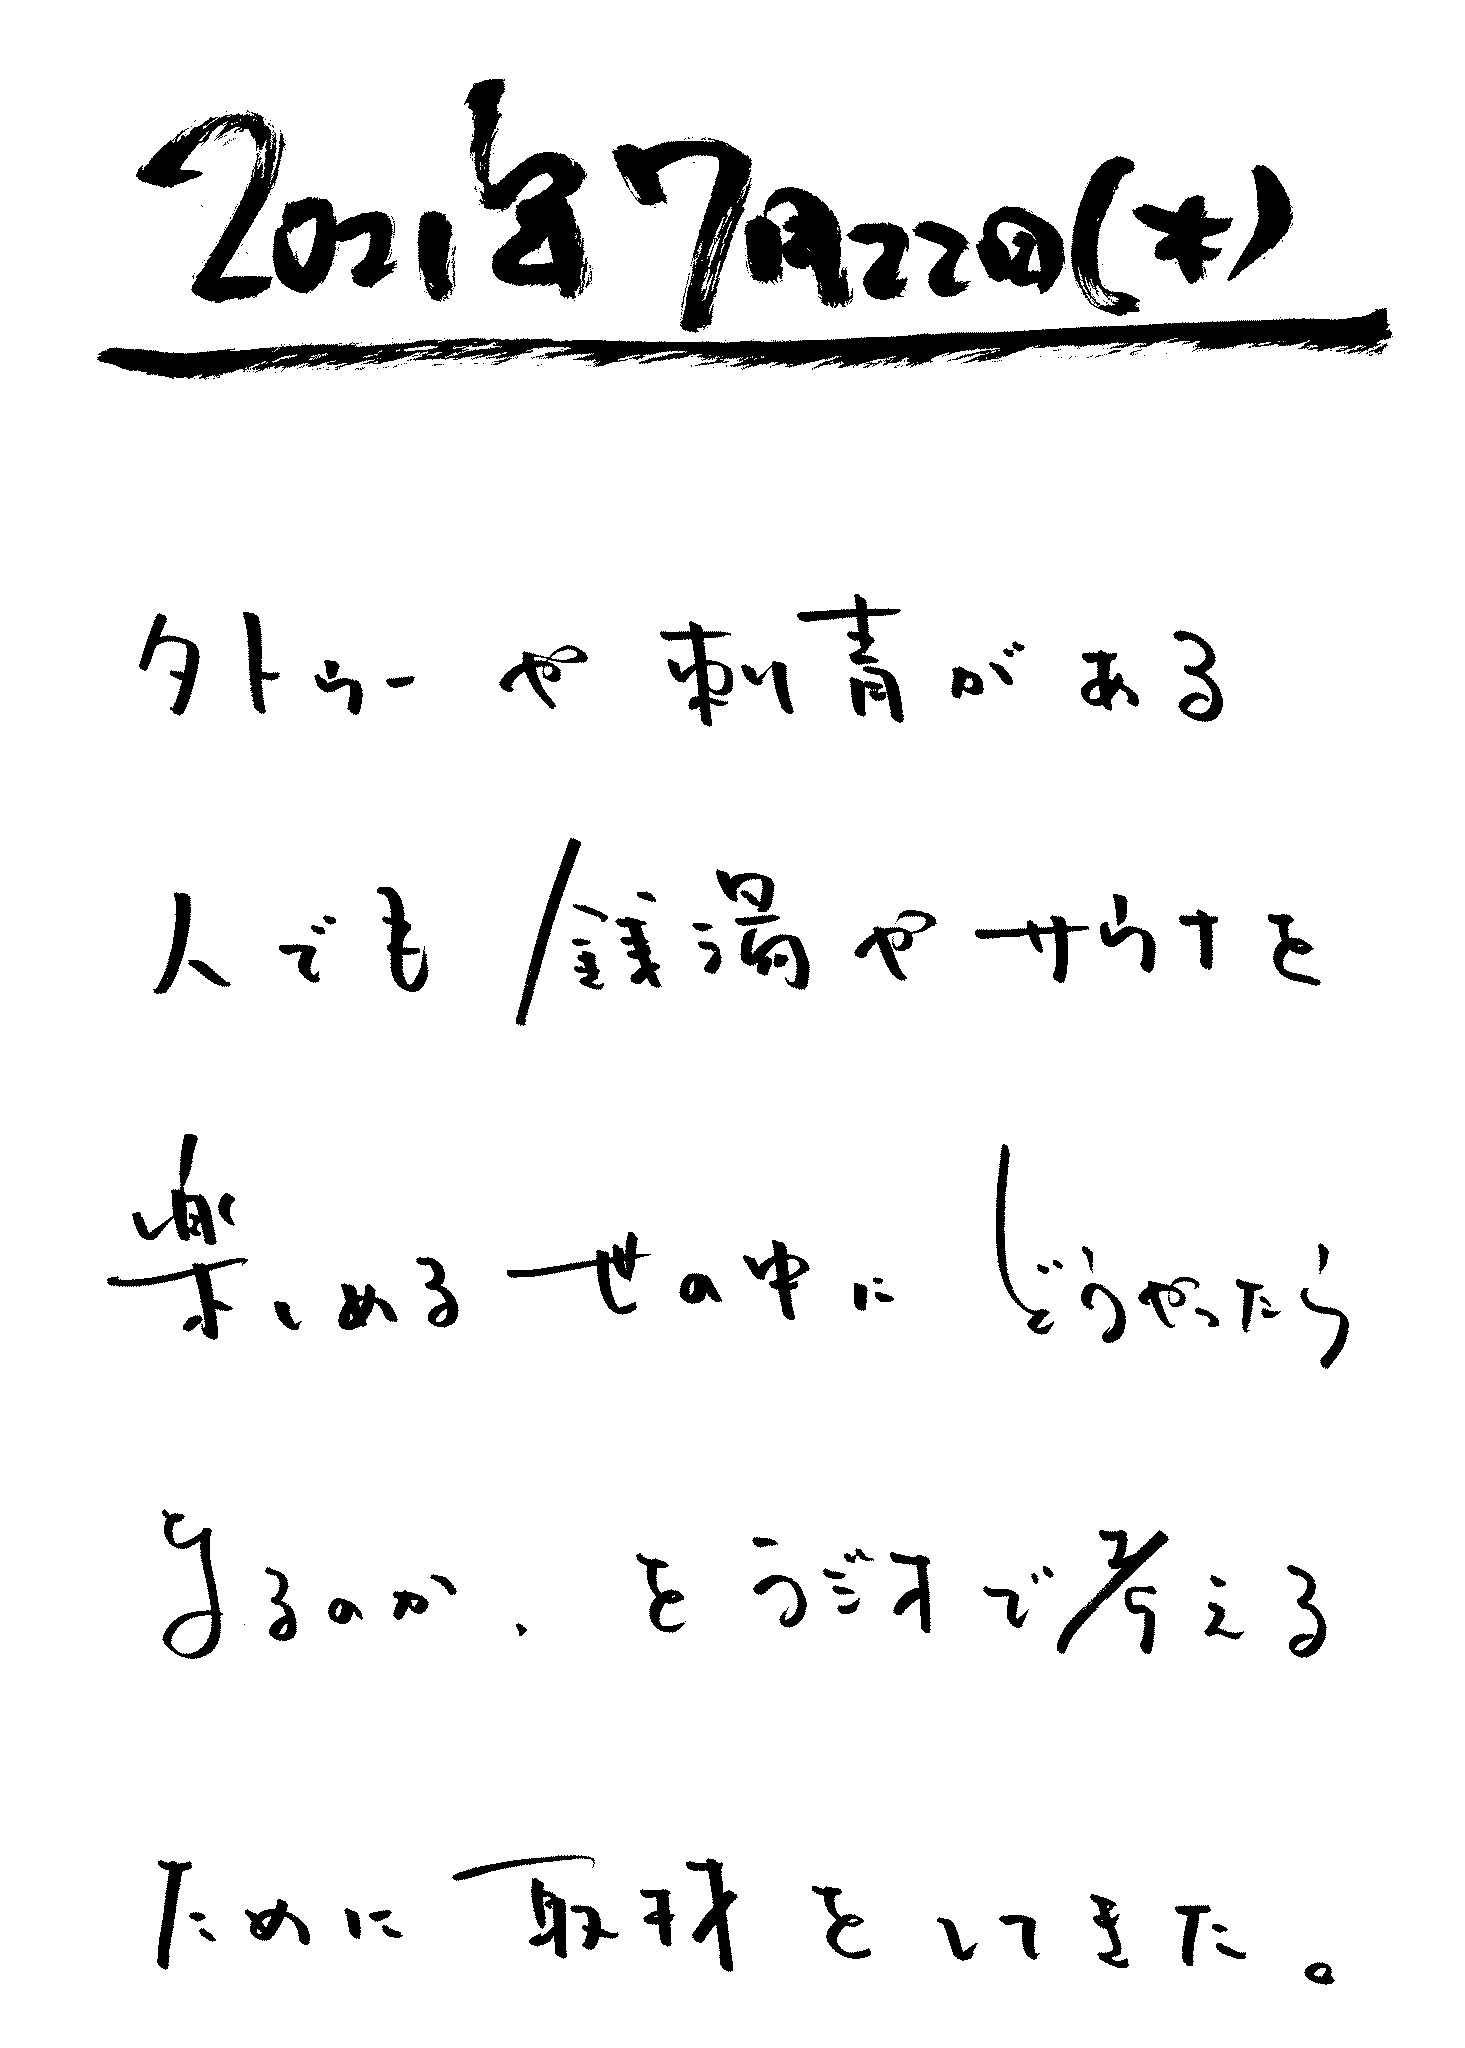 2021年7月22日(木)
タトゥーや刺青がある
人でも銭湯やサウナを
楽しめる世の中にどうやったら
なるのか、をラジオで考える
ために取材をしてきた。